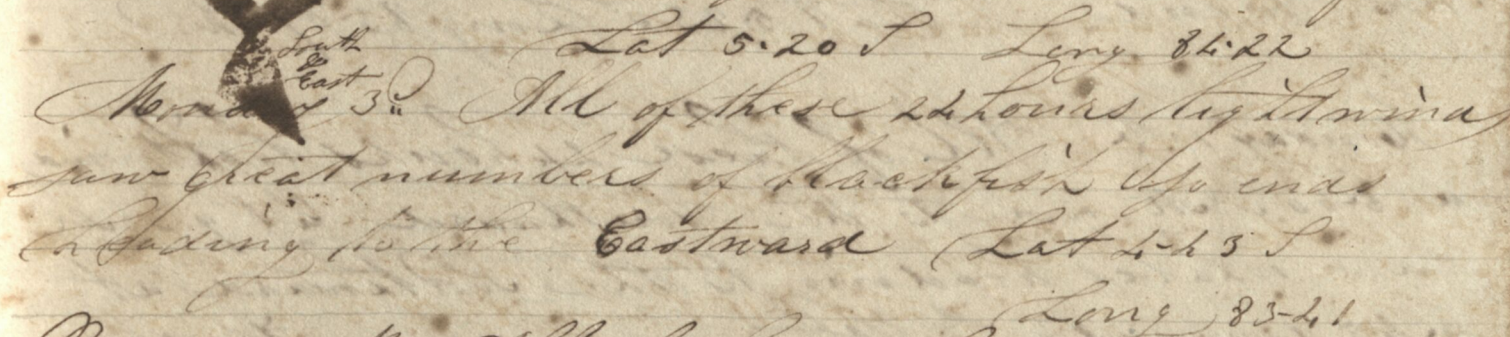 Lat 5.20 S Long 84.22
South
&
East
Monday 3d All of these 24 hours light wind
saw great numbers of blackfish So ends
heading to the Eastward Lat 4-43 S
Long 83-41